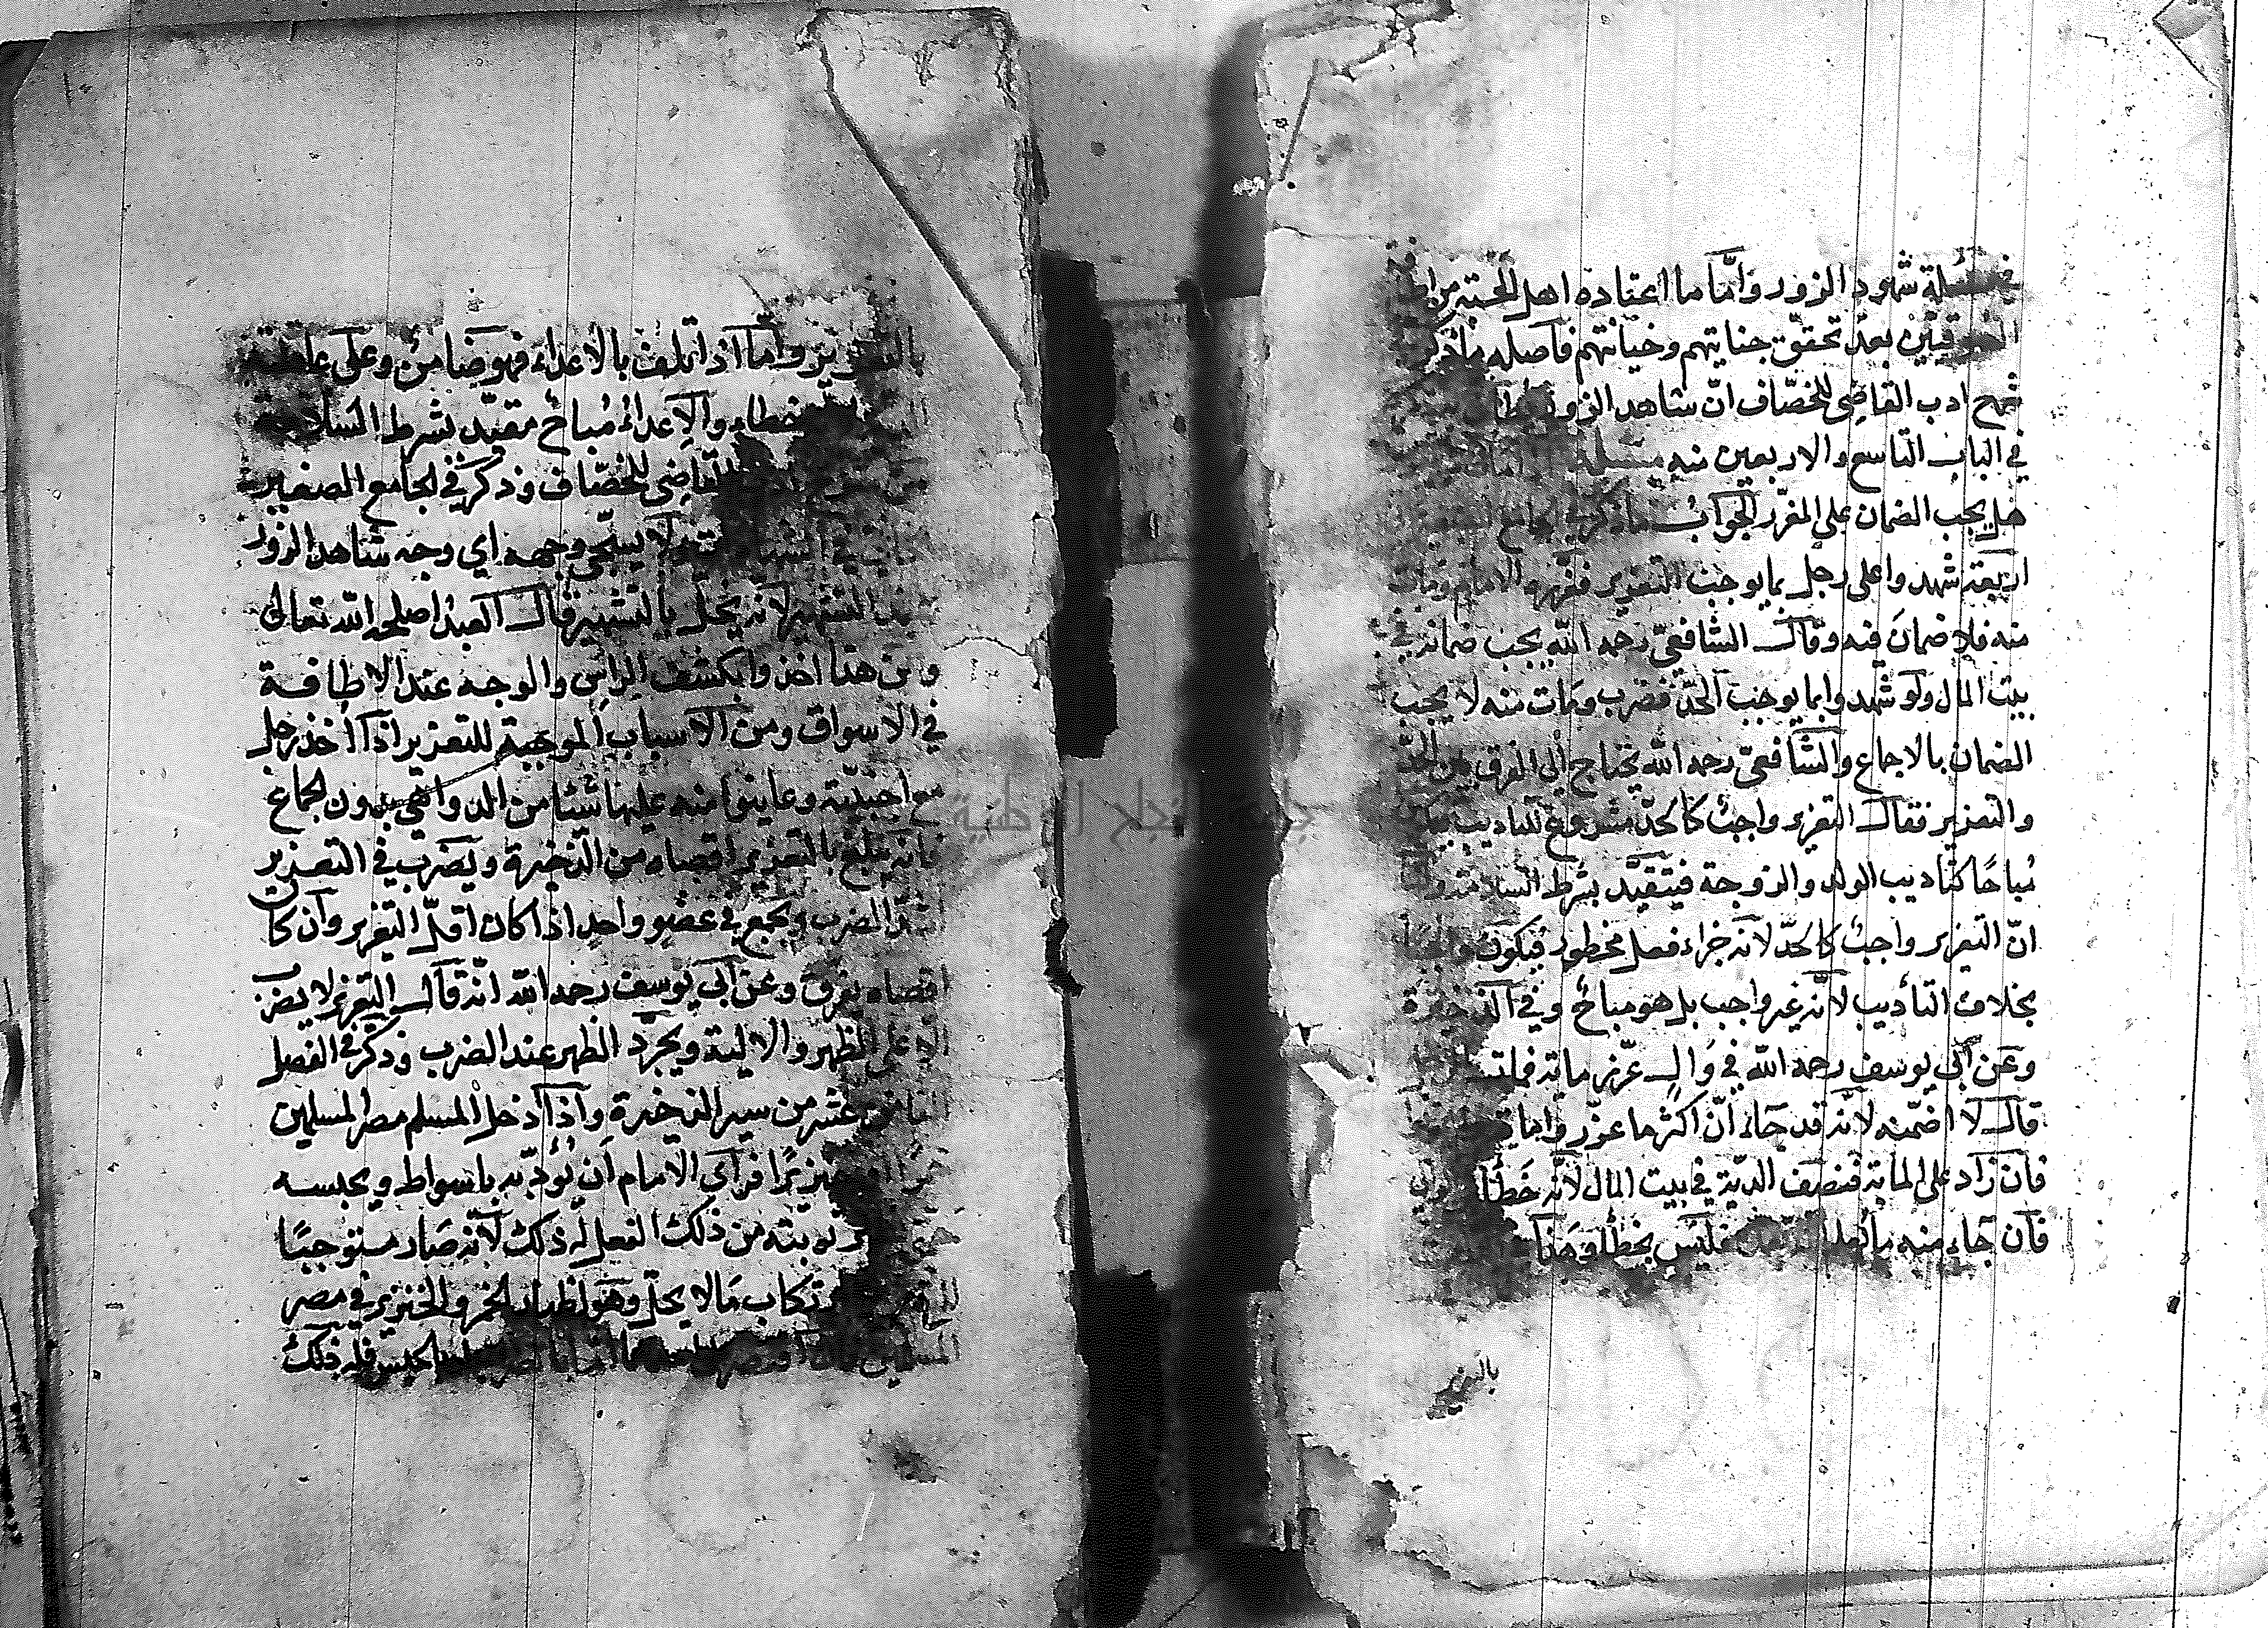 في مسئلة شهود الزور وامّا ما اعتاده اهل الحسبة من
بعد تحقق جنايتهم وخيانتهم فاصله ما ذكر
ادب القاضي للخصّاف انّ شاهد الزور يطاف
في الباب التاسع والاربعين منه مسئلة
هل يجب الضمان على المعزّر الجواب ما ذكر في الجامع
اربعة شهدوا على رجل بما يوجب التعزير فعزّره الامام ومات
منه فلا ضمان فيه وقال الشافعي رحمه الله يجب ضمانه في
بيت المال ولو شهدوا بما يوجب الحدّ فضرب ومات منه لا يجب
الضمان بالاجماع والشافعي رحمه الله يحتاج الى الفرق بين الحدّ
والتعزير فقال التعزير واجب كالحدّ مشروع للتاديب
مُباحًا كتاديب الولد والزوجة فيتقيّد بشرط السلامة
انّ التعزير واجب كالحدّ لانه جزاء فعل محظور فيكون
بخلاف التأديب لانّه غير واجب بل هو مباح وفي الذخيرة
وعن ابي يوسف رحمه الله في وال عزّر مائة فمات
قال لا اضمّنه لانّه قد جاء انّ اكثر ما عزّروا مائة
فان زاد على المائة فنصف الدية في بيت المال لانّه خطأ
فان جاء منه فليس بخطأ وهذا
بالتعزير
بالتعزير وامّا اذا تلف بالاعداء فهو ضامن وعلى عاقلته
خطاء والاعداء مُباح مقيّد بشرط السلامة
القاضي للخصّاف وذكر في الجامع الصغير
ولا يسخّم وجهه اي وجه شاهد الزور
عند التشهير لانه يخلّ بالتشهير قال العبد اصلحه الله تعالى
ومن هذا اخذوا بكشف الراس والوجه عند الاطافة
في الاسواق ومن الاسباب الموجبة للتعزير اذا اُخذ رجل
مع اجنبيّة وعاينوا منه عليها شيئا من الدواعي بدون الجماع
فانه يبلغ بالتعزير اقصاه من الذخيرة ويضرب في التعزير
شدّ الضرب ويجمع في عضو واحد اذا كان اقلّ التعزير وان كان
اقصاه يفرق وعن ابي يوسف رحمه الله انّه قال التعزير لا يضرب
الا على الظهر والالية ويجرّد الظهر عند الضرب وذكر في الفصل
الثامن عشر من سير الذخيرة واذا اُدخل المسلم مصر المسلمين
خمرا او خنزيرًا فراى الامام ان يُؤدّبه باسواط ويحبسه
توبته من ذلك الفعل له ذلك لانّه صار مستوجبًا
ارتكاب ما لا يحلّ وهو اظهار الخمر والخنزير في مصر
المسلمين الحبس فله ذلك